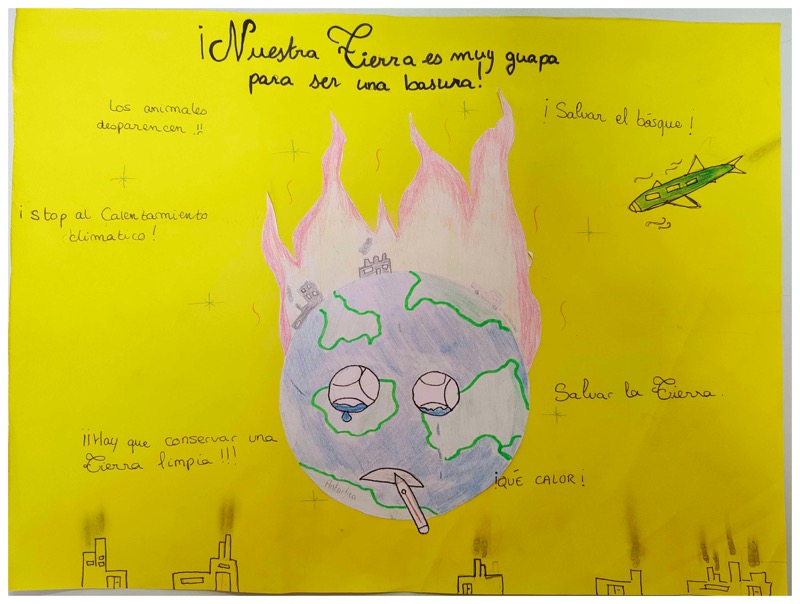 ¡Nuestra Tierra es muy guapa
para ser una basura!
Los animales
desparencen !!
¡Salvar el bósque!
¡Stop al Calentamiento
climático!
Salvar la Tierra.
¡¡Hay que conservar una
Tierra limpia!!!
¡QUÉ CALOR!